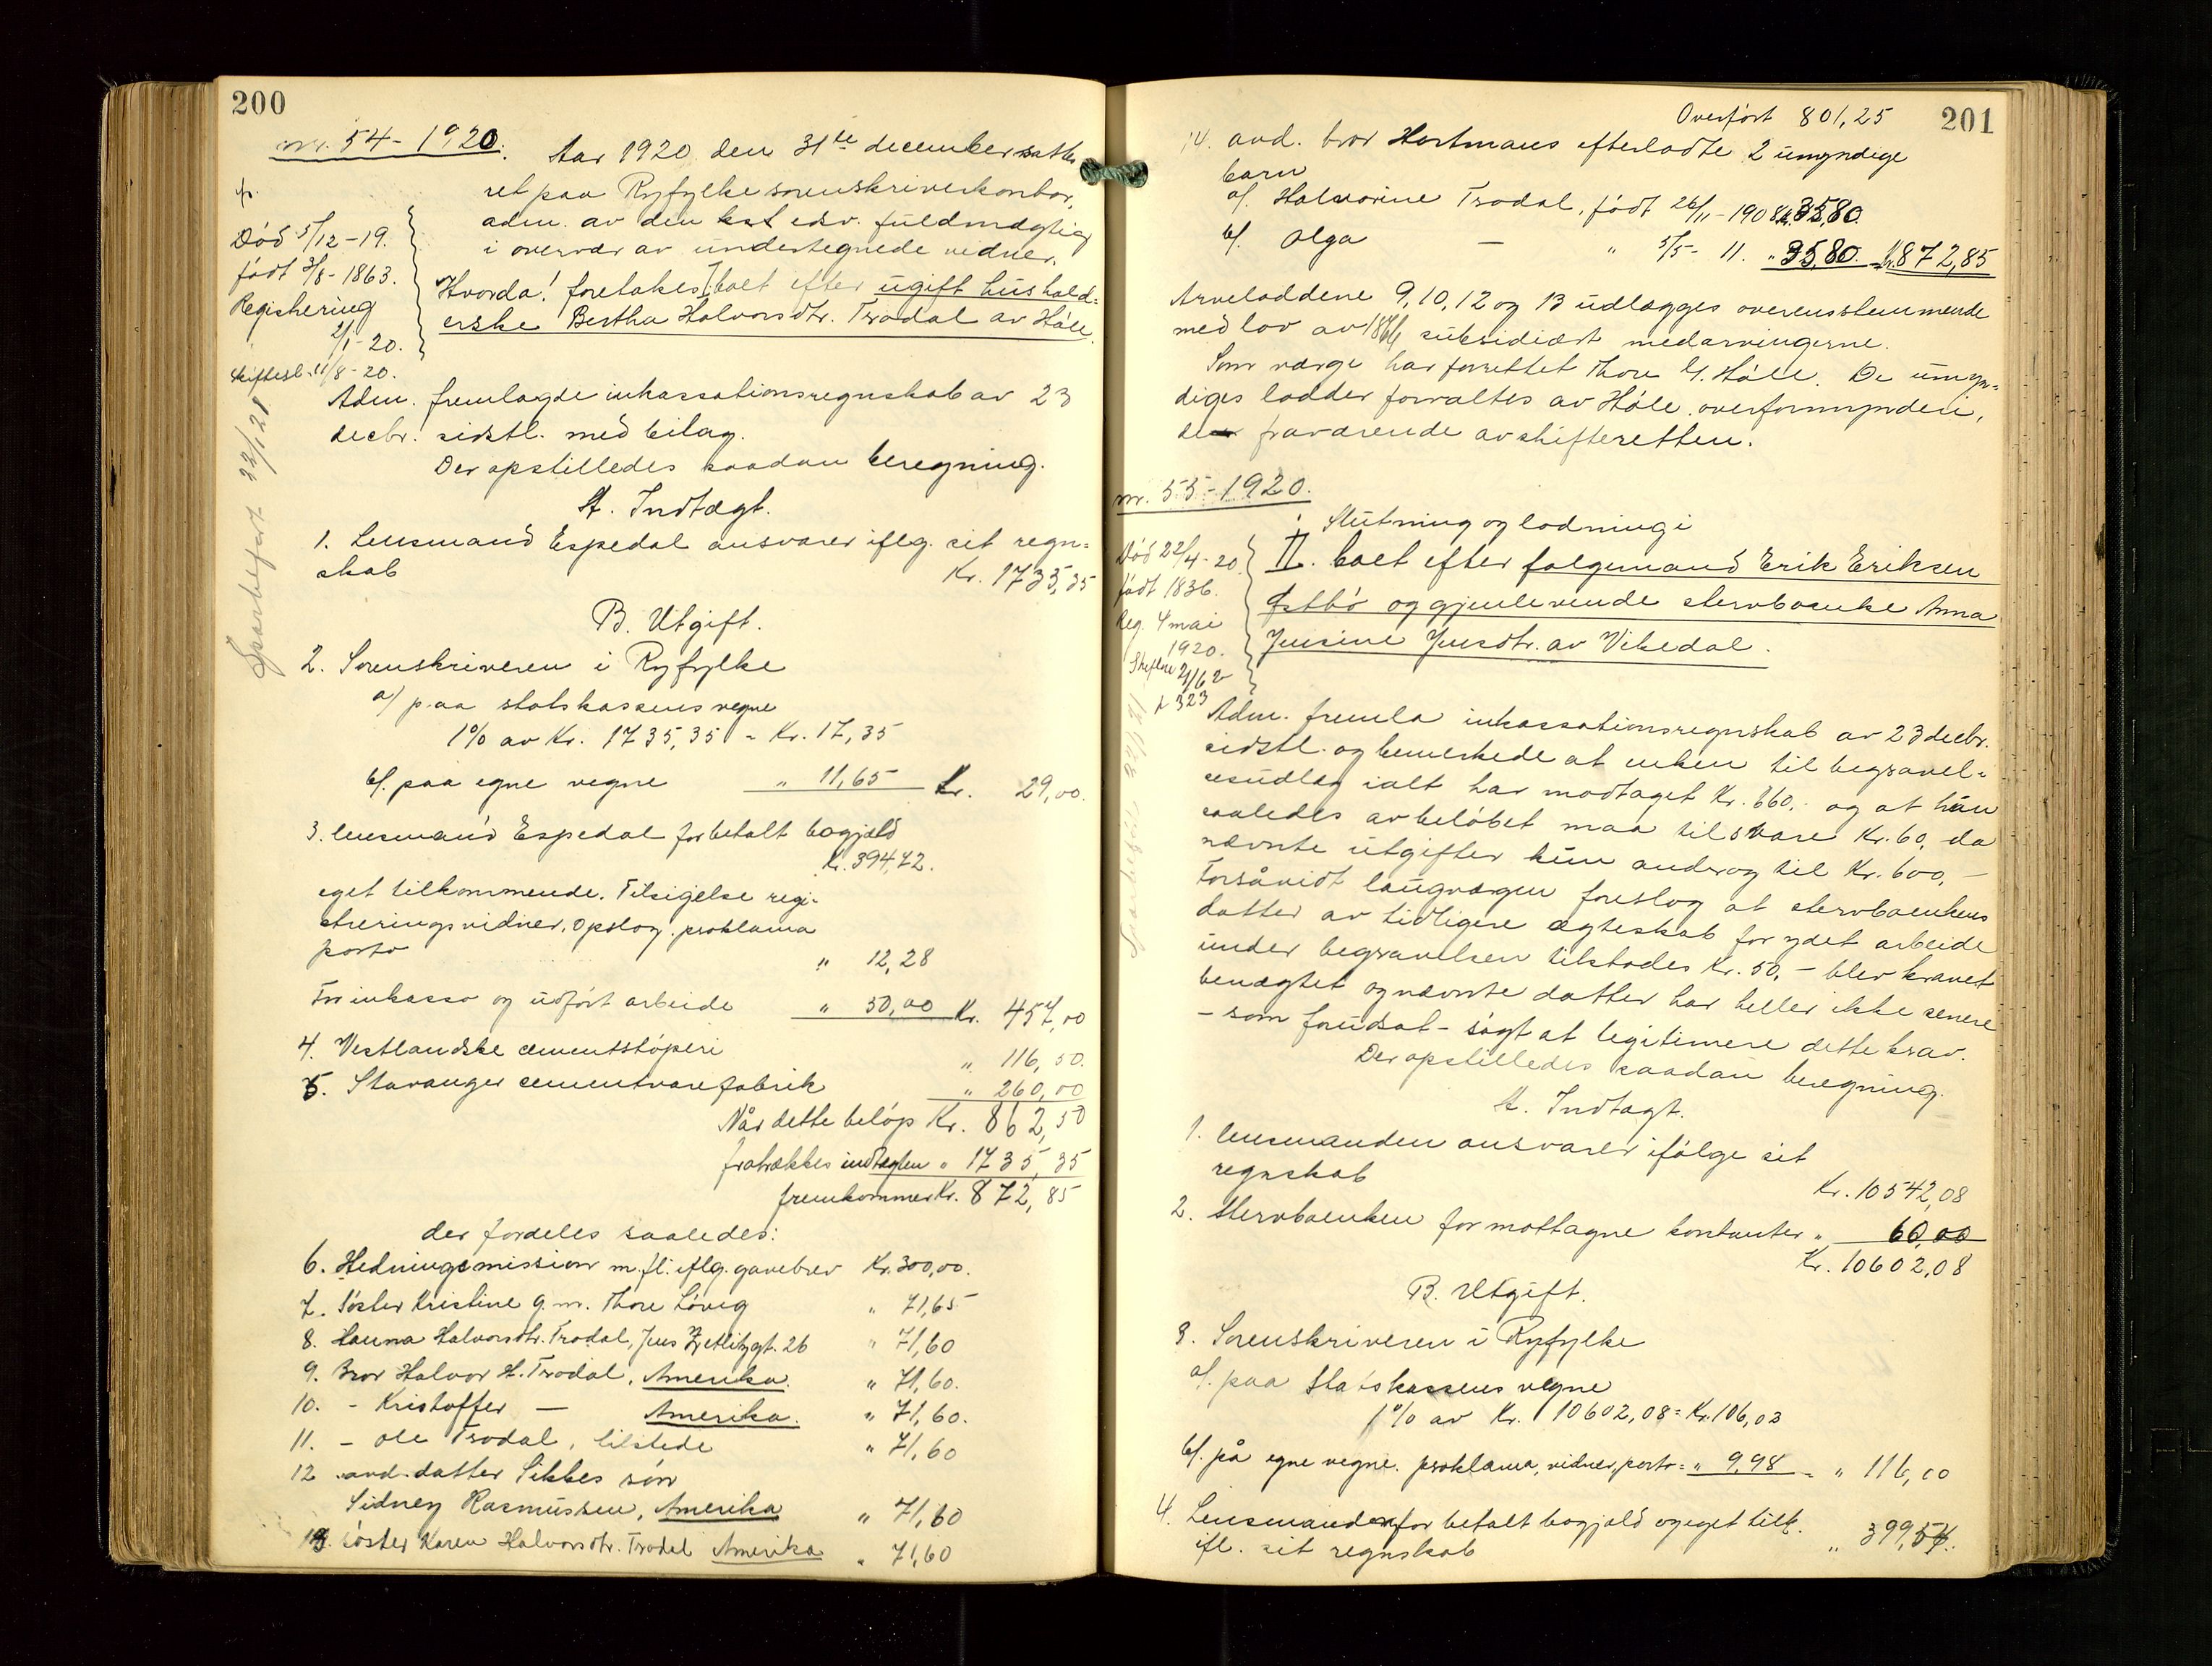 200
nr. 54 - 1920.
Aar 1920 den 31te december sattes
ret paa Ryfylke sorenskriverkontor,
adm. av den edsv. fuldmægtig
i overvær av undertegnede vidner.
Død 5/12-19.
født 3/8-1863.
Registrering
2/1-20.
Skiftesl. 11/8-20.
Hvorda! foretokes I boet efter ugift hushold-
erske Bertha Halvorsdtr. Trodal av Høle
Adm. fremlagde inkassationsregnskab av 23
decbr. sidstl. med bilag.
Der opstilledes saadan beregning.
A. Indtægt.
1. Lensmand Espedal ansvarer iflg. sit regn-
skab Kr. 1735,35
B. Utgift.
2. Sorenskriveren i Ryfylke
a/ paa statskassens vegne
1% av Kr. 1735,35 = Kr. 17,35
b/. paa egne vegne " 11,65 Kr. 29,00.
3. lensmand Espedal for betalt bogjæld
Kr. 394,72.
eget tilkommende. Tilsigelse regi-
streringsvidner, opslag, proklama
porto " 12,28
For inkasso og udført arbeide " 50,00 Kr. 457,00
4. Vestlandske cementstøperi " 116,50.
5. Stavanger cementvarefabrik " 260,00
Når dette beløp Kr. 862,50
fratrækkes indtægten " 1735,35
fremkommer Kr. 872,85
der fordeles saaledes:
6. Hedningemission m.fl. iflg. gavebrev Kr. 300,00.
7. Søster Kristine g.m. Thore Løvig " 71,65
8. Hanna Halvorsdtr. Trodal, Jens Zetlitzgt. 26 " 71,60
9. Bror Halvor H. Trodal, Amerika. " 71,60.
10. - Kristoffer — Amerika. " 71,60.
11. - Ole Trodal, tilstede " 71,60
12. avd. datter Sikkes søn
Sidney Rasmussen, Amerika " 71,60
13. søster Karen Halvorsdtr. Trodal Amerika " 71,60
201
Overført 801,25
14. avd. bror Hartmans efterladte 2 umyndige
barn
a/. Halvorine Trodal, født 26/11-1908 kr. 35,80.
b/. Olga — " 5/5- 11. " 35,80. Kr. 872,85
Arveloddene 9, 10, 12 og 13 udlægges overensstemmende
med lov av subsidiært medarvingerne.
Som værge har forrettet Thore G. Høle. De umyn-
diges lodder forvaltes av Høle overformynderi,
de fraværende av skifteretten.
nr. 55 - 1920.
Slutning og lodning i
Død 22/4-20.
født 1836.
Reg. 4 mai
1920.
II. boet efter følgemand Erik Eriksen
Østbø og gjenlevende stervboenke Anna
Jensine Jensdtr. av Vikedal.
Adm. fremla inkassationsregnskab av 23 decbr.
sidstl. og bemerkede at enken til begravel-
sesudlæg ialt har modtaget Kr. 660,- og at hun
saaledes av beløbet maa tilsvare Kr. 60, da
nævnte utgifter kun androg til Kr. 600,-
Forsåvidt laugværgen foreslog at stervboenkens
datter av tidligere ægteskab for ydet arbeide
under begravelsen tilstodes Kr. 50,- blev kravet
benægtet og nævnte datter har heller ikke senere
- som forudsat - søgt at legitimere dette krav.
Der opstilledes saadan beregning.
A. Indtægt.
1. lensmanden ansvarer ifølge sit
regnskab Kr. 10542,08
2. Stervboenken for mottagne kontanter " 60,00
Kr. 10602,08
B. Utgift.
3. Sorenskriveren i Ryfylke
a/. paa Statskassens vegne
1% av Kr. 10602,08 = Kr. 106,02
b/. på egne vegne. proklama, vidner, porto = " 9,98 = " 116,00
4. Lensmanden for betalt bogjæld og eget tilk.
ifl. sit regnskab " 399,54.